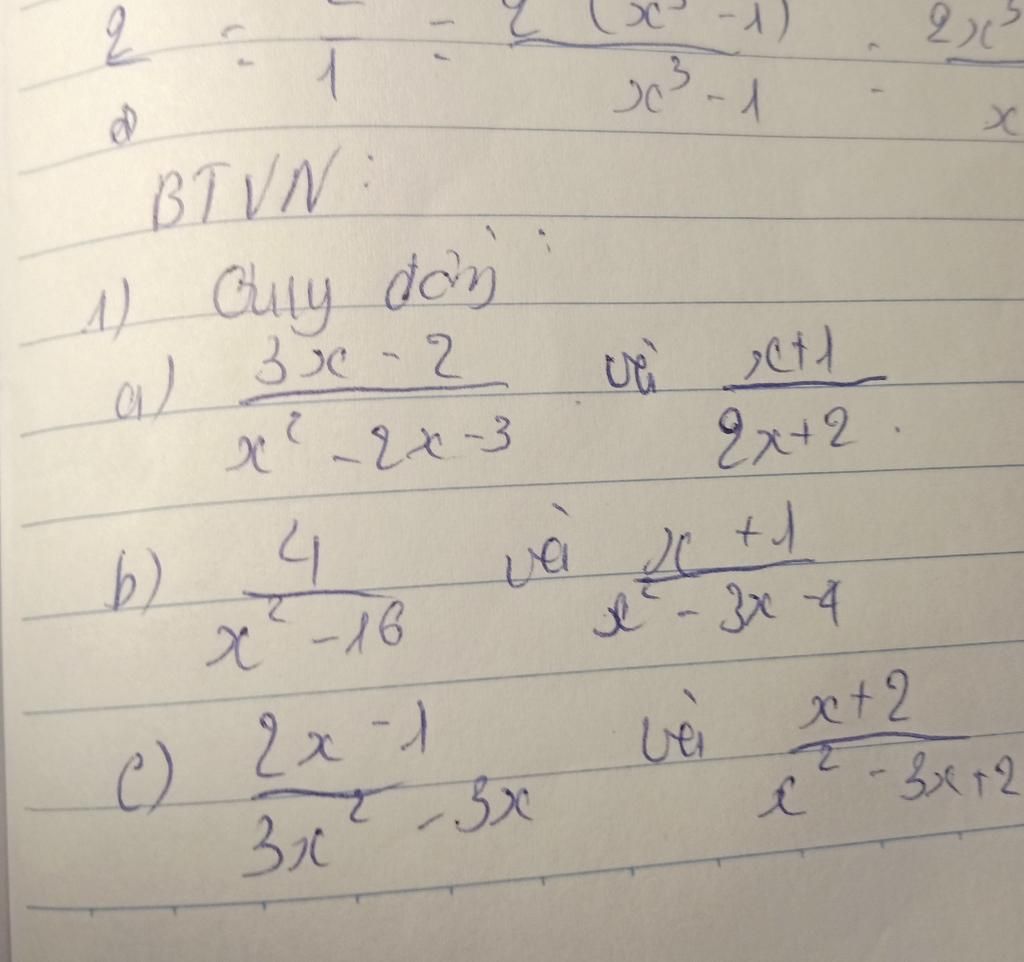 2 = /1 = 2(x³ - 1)/(x³ - 1) = 2x³/x
BTVN:
1) Quy đồn:
a) (3x - 2)/(x² - 2x - 3) và (x+1)/(2x+2).
b) 4/(x² - 16) và (x + 1)/(x² - 3x - 4)
c) (2x - 1)/(3x² - 3x) và (x+2)/(x² - 3x + 2)